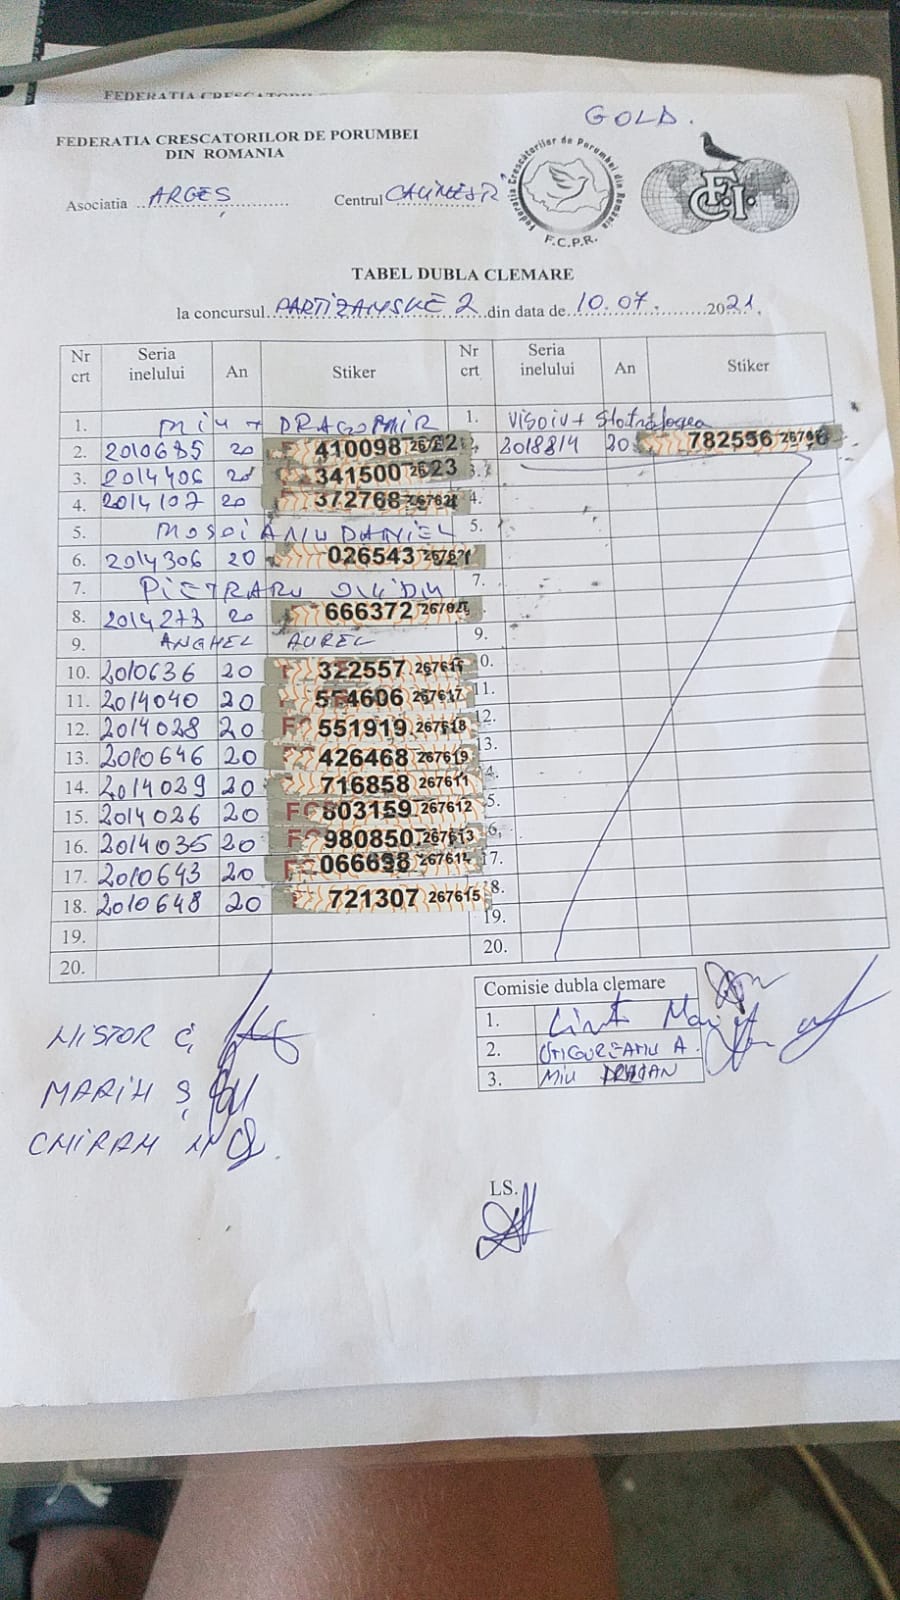 GOLD.
FEDERATIA CRESCATORILOR DE PORUMBEI
DIN ROMANIA
Asociatia ARGEȘ Centrul CALINESTI
Federatia Crescătorilor de Porumbei din România
F.C.P.R.
F.C.I.
TABEL DUBLA CLEMARE
la concursul PARTIZANSKE 2 din data de 10.07. 2021.
Nr crt Seria inelului An Stiker Nr crt Seria inelului An Stiker
1. MIU + DRAGOMIR 1. VISOIU +
2. 2010685 20 410098 2018814 20 782556
3. 2014406 20 341500 3.
4. 2014107 20 372768 4.
5. MOSOIANU DANIEL 5.
6. 2014306 20 026543
7. PIETRARU OVIDIU 7.
8. 2014273 20 666372
9. ANGHEL AUREL 9.
10. 2010636 20 322557 0.
11. 2014040 20 554606 267617 11.
12. 2014028 20 551919 267618 12.
13. 2010646 20 426468 267619 3.
14. 2014029 20 716858 267611
15. 2014026 20 FC 803159 267612 5.
16. 2014035 20 980850 267613 6.
17. 2010643 20 066698 267614 17.
18. 2010648 20 721307 267615 8.
19. 19.
20. 20.
Comisie dubla clemare
1. Mar
2. UNGUREANU A.
3. MIU
NISTOR C,
MARIN S
CHIRAN
LS.